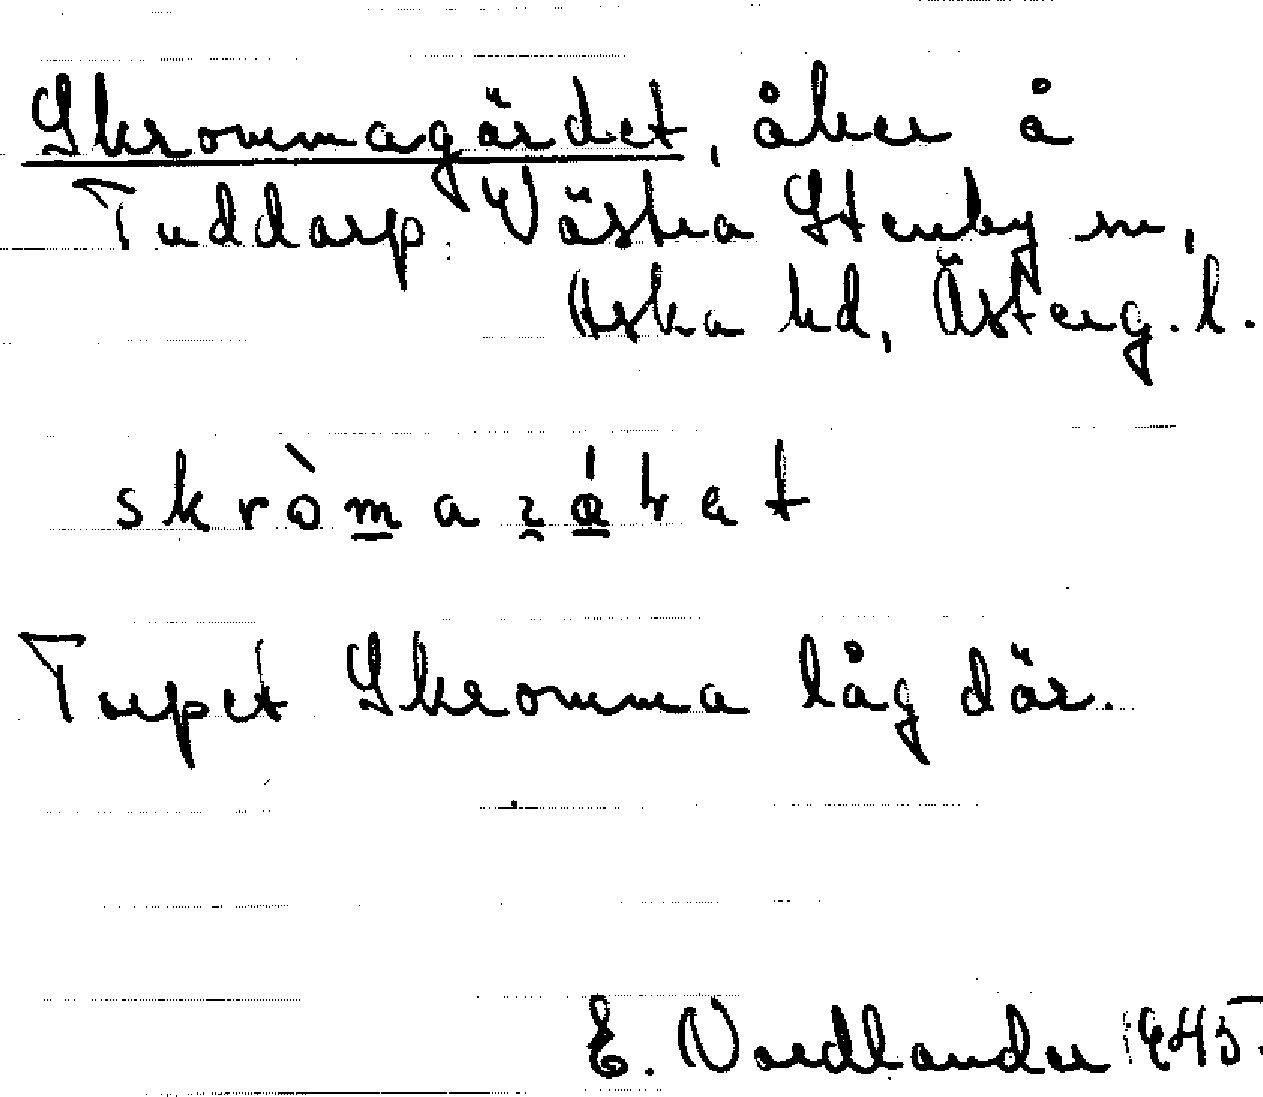 Skrommagärdet, åker å
Tuddarp. Västra Stenby sn,
Aska hd, Österg. l.
skròmaɀát et
Torpet Skromma låg där.
E. Nordlander 1945.